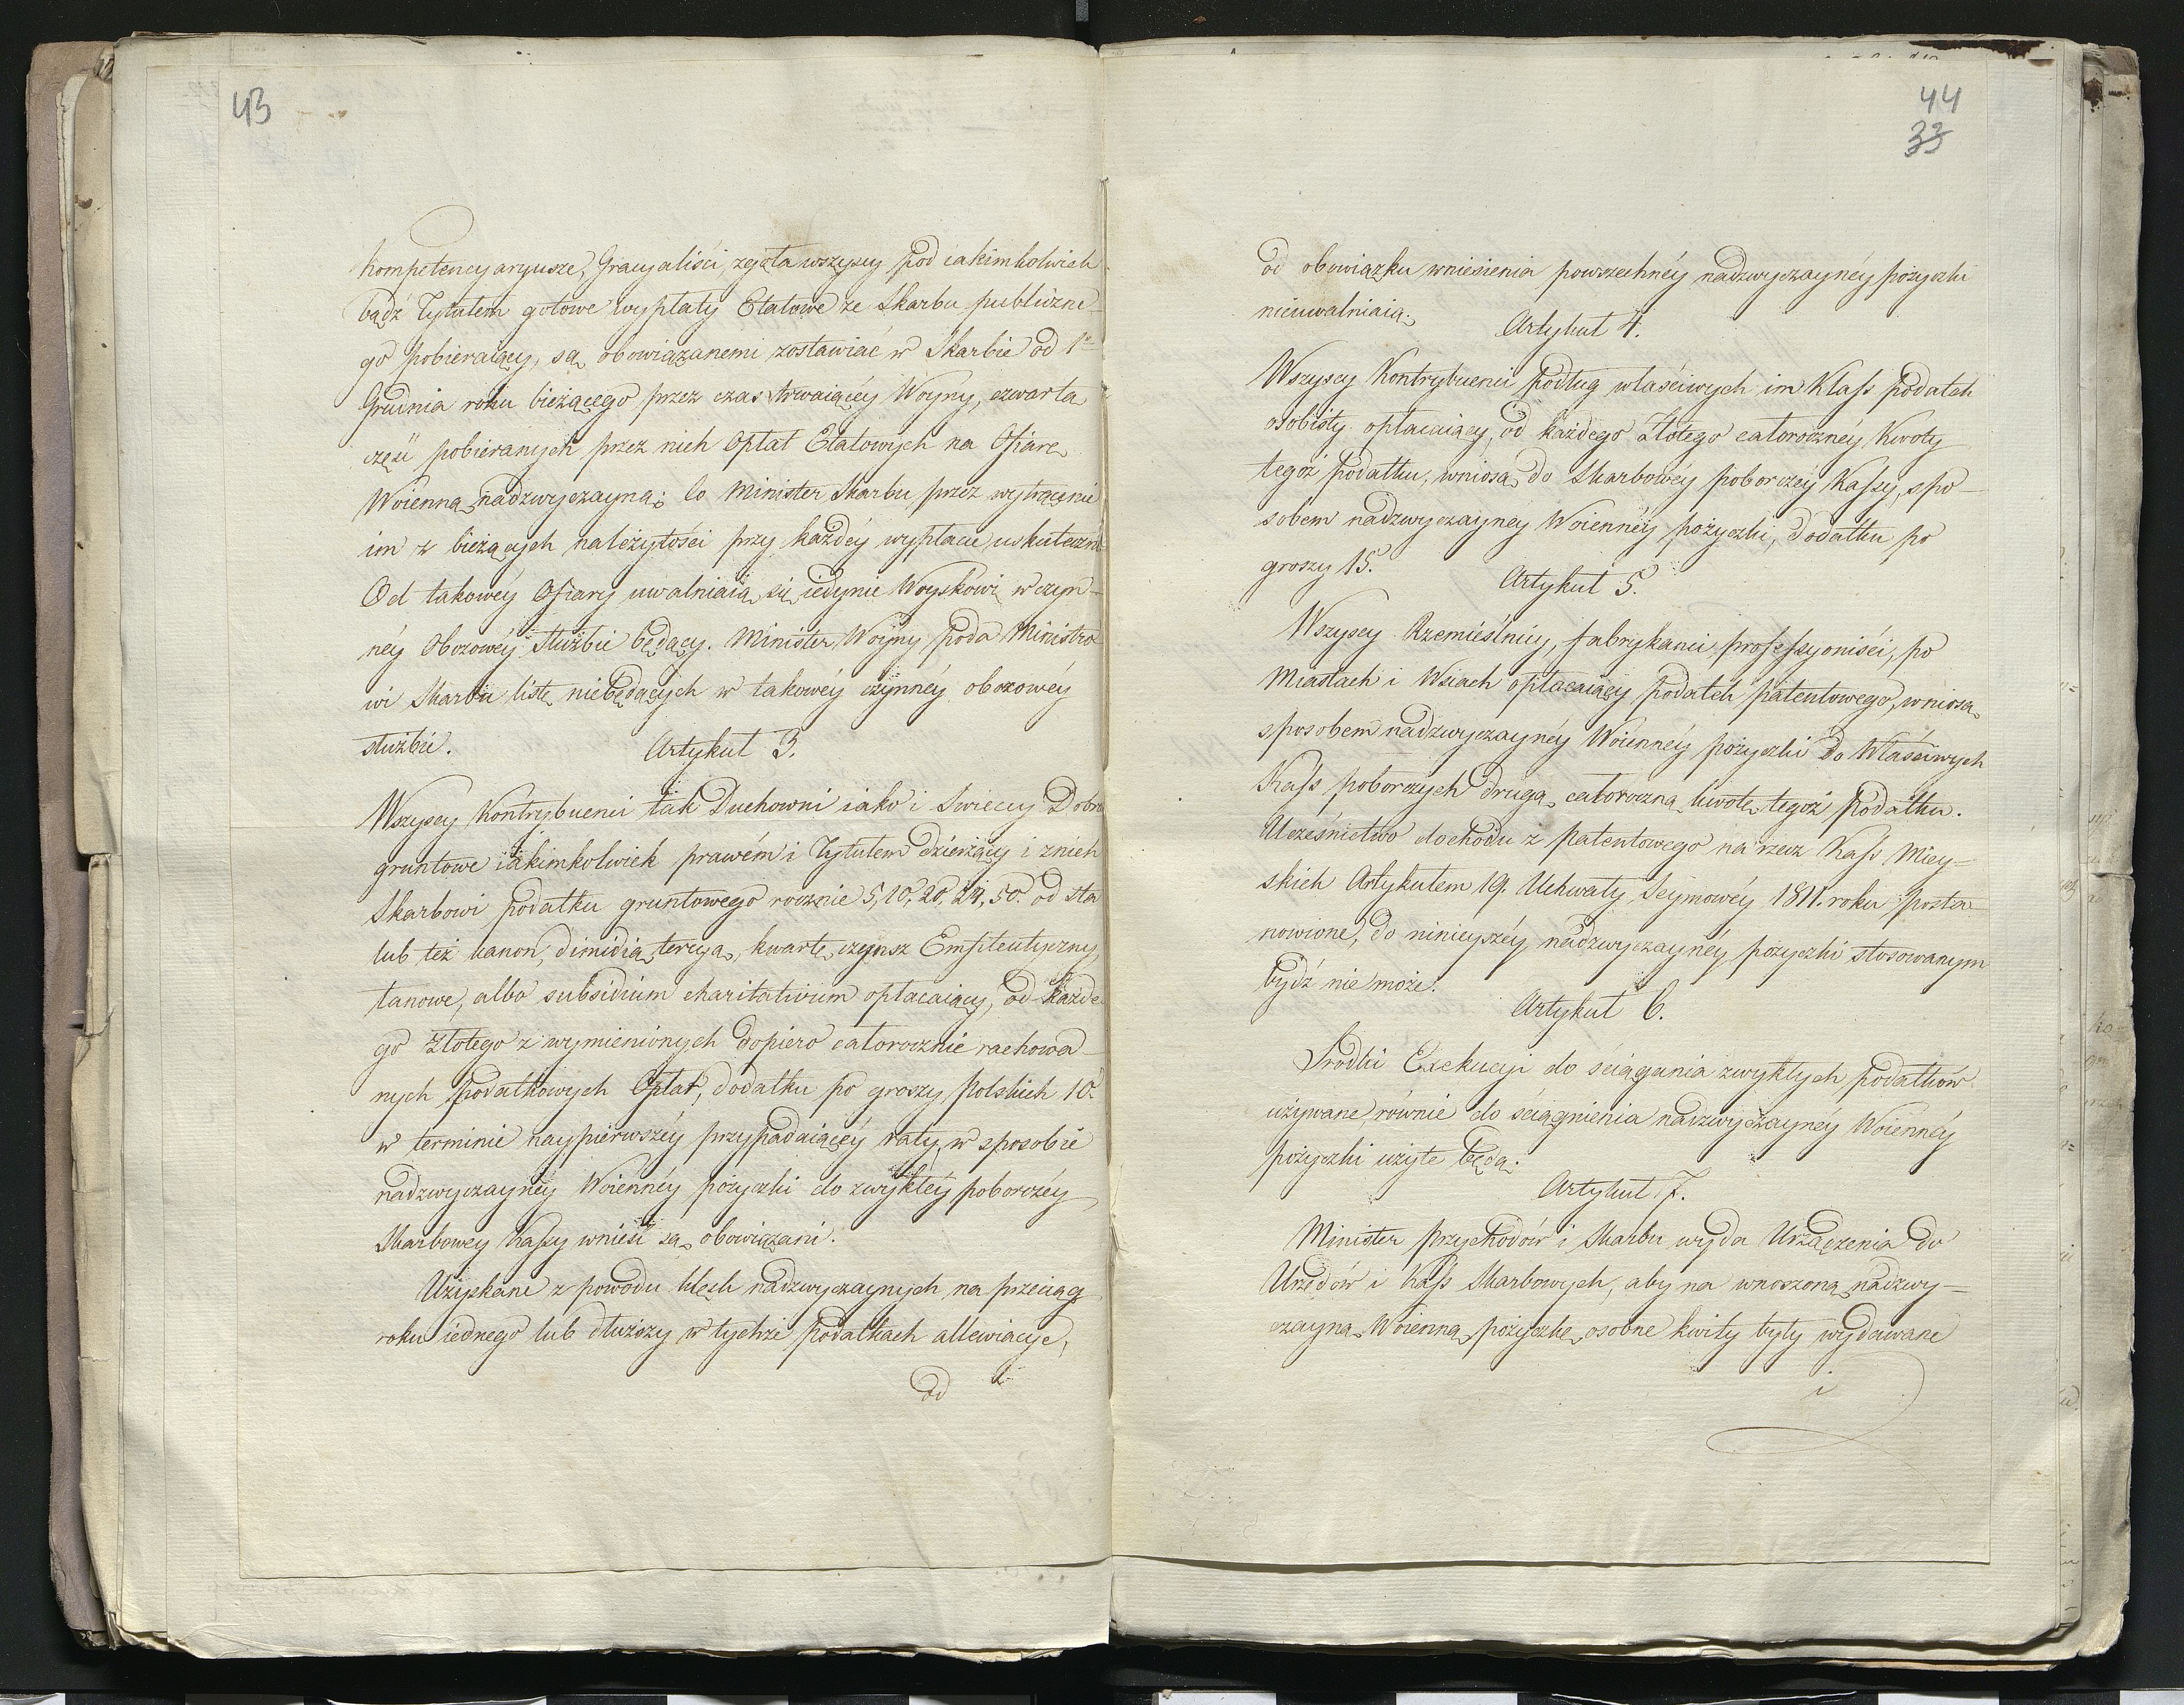 43
Kompetencyaryusze, Gracyaliści, zgoła wszyscy pod iakimkolwiek
bądź Tytułem gotowe wypłaty Etatowe ze Skarbu publiczne-
go pobieraiący, są obowiązanemi zostawiać w Skarbie od 1º
Grudnia roku bieżącego przez czas trwaiącéy Woyny, czwartą
część pobieranych przez nich Opłat Etatowych na Ofiarę
Woienną nadzwyczayną; co Minister Skarbu przez wytrącenie
im z bieżących należytości przy każdéy wypłacie uskuteczni.
Od takowéy Ofiary uwalniaią się iedynie Woyskowi w czyn-
néy Obozowéy Służbie będący. Minister Woyny poda Ministro-
wi Skarbu listę niebędących w takowéy czynnéy obozowéy
służbie.
Artykuł 3.
Wszyscy Kontrybuenci tak Duchowni iako i Swieccy Dobra
gruntowe iakimkolwiek prawém i Tytułem dzierżący i z nich
Skarbowi podatku gruntowego rocznie 5, 10, 20, 24, 50. od sta
lub też kanon, dimidią, tercyą, kwartę, czynsz Emfiteutyczny,
łanowe, albo subsidium charitativum opłacaiący, od każde-
go Złotego z wymienionych dopiero całorocznie rachowa-
nych podatkowych Opłat, dodatku po groszy Polskich 10.
w terminie naypierwszéy przypadaiącéy raty, w sposobie
nadzwyczaynéy Woiennéy pożyczki do zwykłéy poborczéy
Skarbowey Kassy wnieść są obowiązani.
Uzyskane z powodu klęsk nadzwyczaynych na przeciąg
roku iednego lub dłuższy w tychże podatkach allewiacye,
od
44
33
od obowiązku wniesienia powszechnéy nadzwyczaynéy pożyczki
nieuwalniaią.
Artykuł 4.
Wszyscy Kontrybuenci podług właściwych im Klass podatek
osobisty opłacaiący, od każdego Złotego całorocznéy Kwoty
tegoż podatku, wniosą do Skarbowéy poborczéy Kassy, spo-
sobem nadzwyczaynéy Woiennéy pożyczki, dodatku po
groszy 15.
Artykuł 5.
Wszyscy Rzemieślnicy, fabrykanci professyoniści, po
Miastach i Wsiach opłacaiący podatek patentowego, wniosą
sposobem nadzwyczaynéy Woiennéy pożyczki do Właściwych
Kass poborczych drugą całoroczną kwotę tegoż podatku.
Uczęśnictwo dochodu z patentowego na rzecz Kass Miey-
skich Artykułem 19. Uchwały Seymowéy 1811. roku posta-
nowione, do ninieyszéy nadzwyczaynéy pożyczki stosowanym
bydź nie może.
Artykuł 6.
Srodki Exekucyi do ściągania zwykłych podatków
używane, równie do ściągnienia nadzwyczaynéy Woiennéy
pożyczki użyte będą.
Artykuł 7.
Minister przychodów i Skarbu wyda Urządzenia do
Urzędów i Kass Skarbowych, aby na wnoszoną nadzwy-
czayną Woienną pożyczkę osobne kwity były wydawane
i